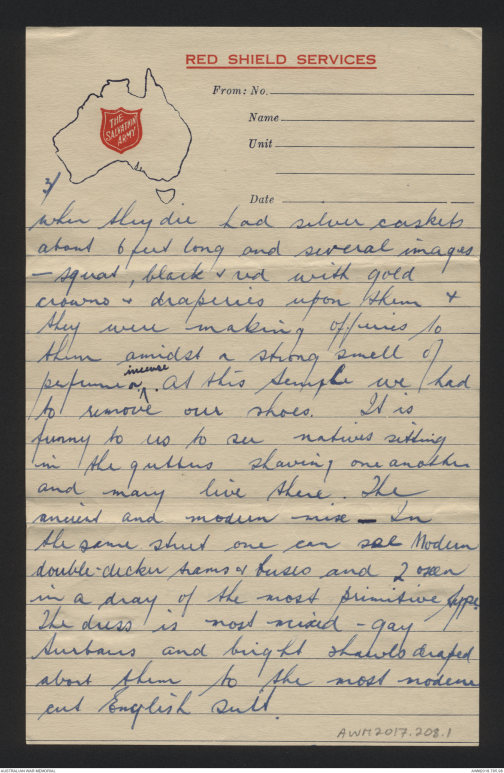 RED SHIELD SERVICES
THE
SALVATION
ARMY
From: No.
Name
Unit
Date
3/
when they die had silver caskets
about 6 feet long and several images
- squat, black & red with gold
crowns & draperies upon them &
they were making offeries to
them amidst a strong smell of
incense
perfume or . At this temple we had
to remove our shoes. It is
funny to us to see natives sitting
in the gutters shaving one another
and many live there. The
ancient and modern mix - In
the same street one can see Modern
double-decker trams & buses and 2 oxen
in a dray of the most primitive type.
The dress is most mixed - gay
turbans and bright shawls draped
about them to the most modern
cut English suit.
AWM2017.208.1
AUSTRALIAN WAR MEMORIAL